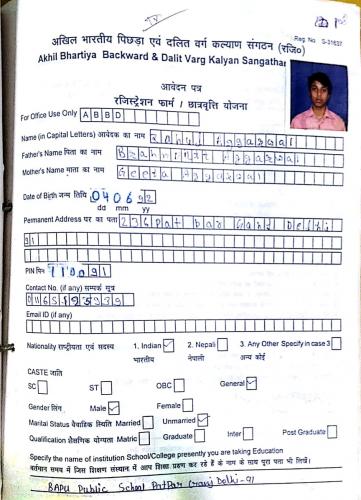 Reg. No. S-31637
अखिल भारतीय पिछड़ा एवं दलित वर्ग कल्याण संगठन (रजि०)
Akhil Bhartiya Backward & Dalit Varg Kalyan Sangathan
आवेदन पत्र
रजिस्ट्रेशन फार्म / छात्रवृत्ति योजना
For Office Use Only A B B D
Name (in Capital Letters) आवेदक का नाम
Father's Name पिता का नाम
Mother's Name माता का नाम Geeta
Date of Birth जन्म तिथि 040692
dd mm yy
Permanent Address घर का पता 236 Pat Par Ganj Delhi
91
PIN पिन 110091
Contact No. (if any) सम्पर्क सूत्र
Email ID (if any)
Nationality राष्ट्रीयता एवं सदस्य 1. Indian 2. Nepali 3. Any Other Specify in case 3
भारतीय नेपाली अन्य कोई
CASTE जाति
SC ST OBC General
Gender लिंग Male Female
Marital Status वैवाहिक स्थिति Married Unmarried
Qualification शैक्षणिक योग्यता Matric Graduate Inter Post Graduate
Specify the name of institution School/College presently you are taking Education
वर्तमान समय में जिस शिक्षण संस्थान में आप शिक्षा ग्रहण कर रहे हैं के नाम के साथ पूरा पता भी लिखें।
BAPU Public School PatPar Ganj Delhi-91